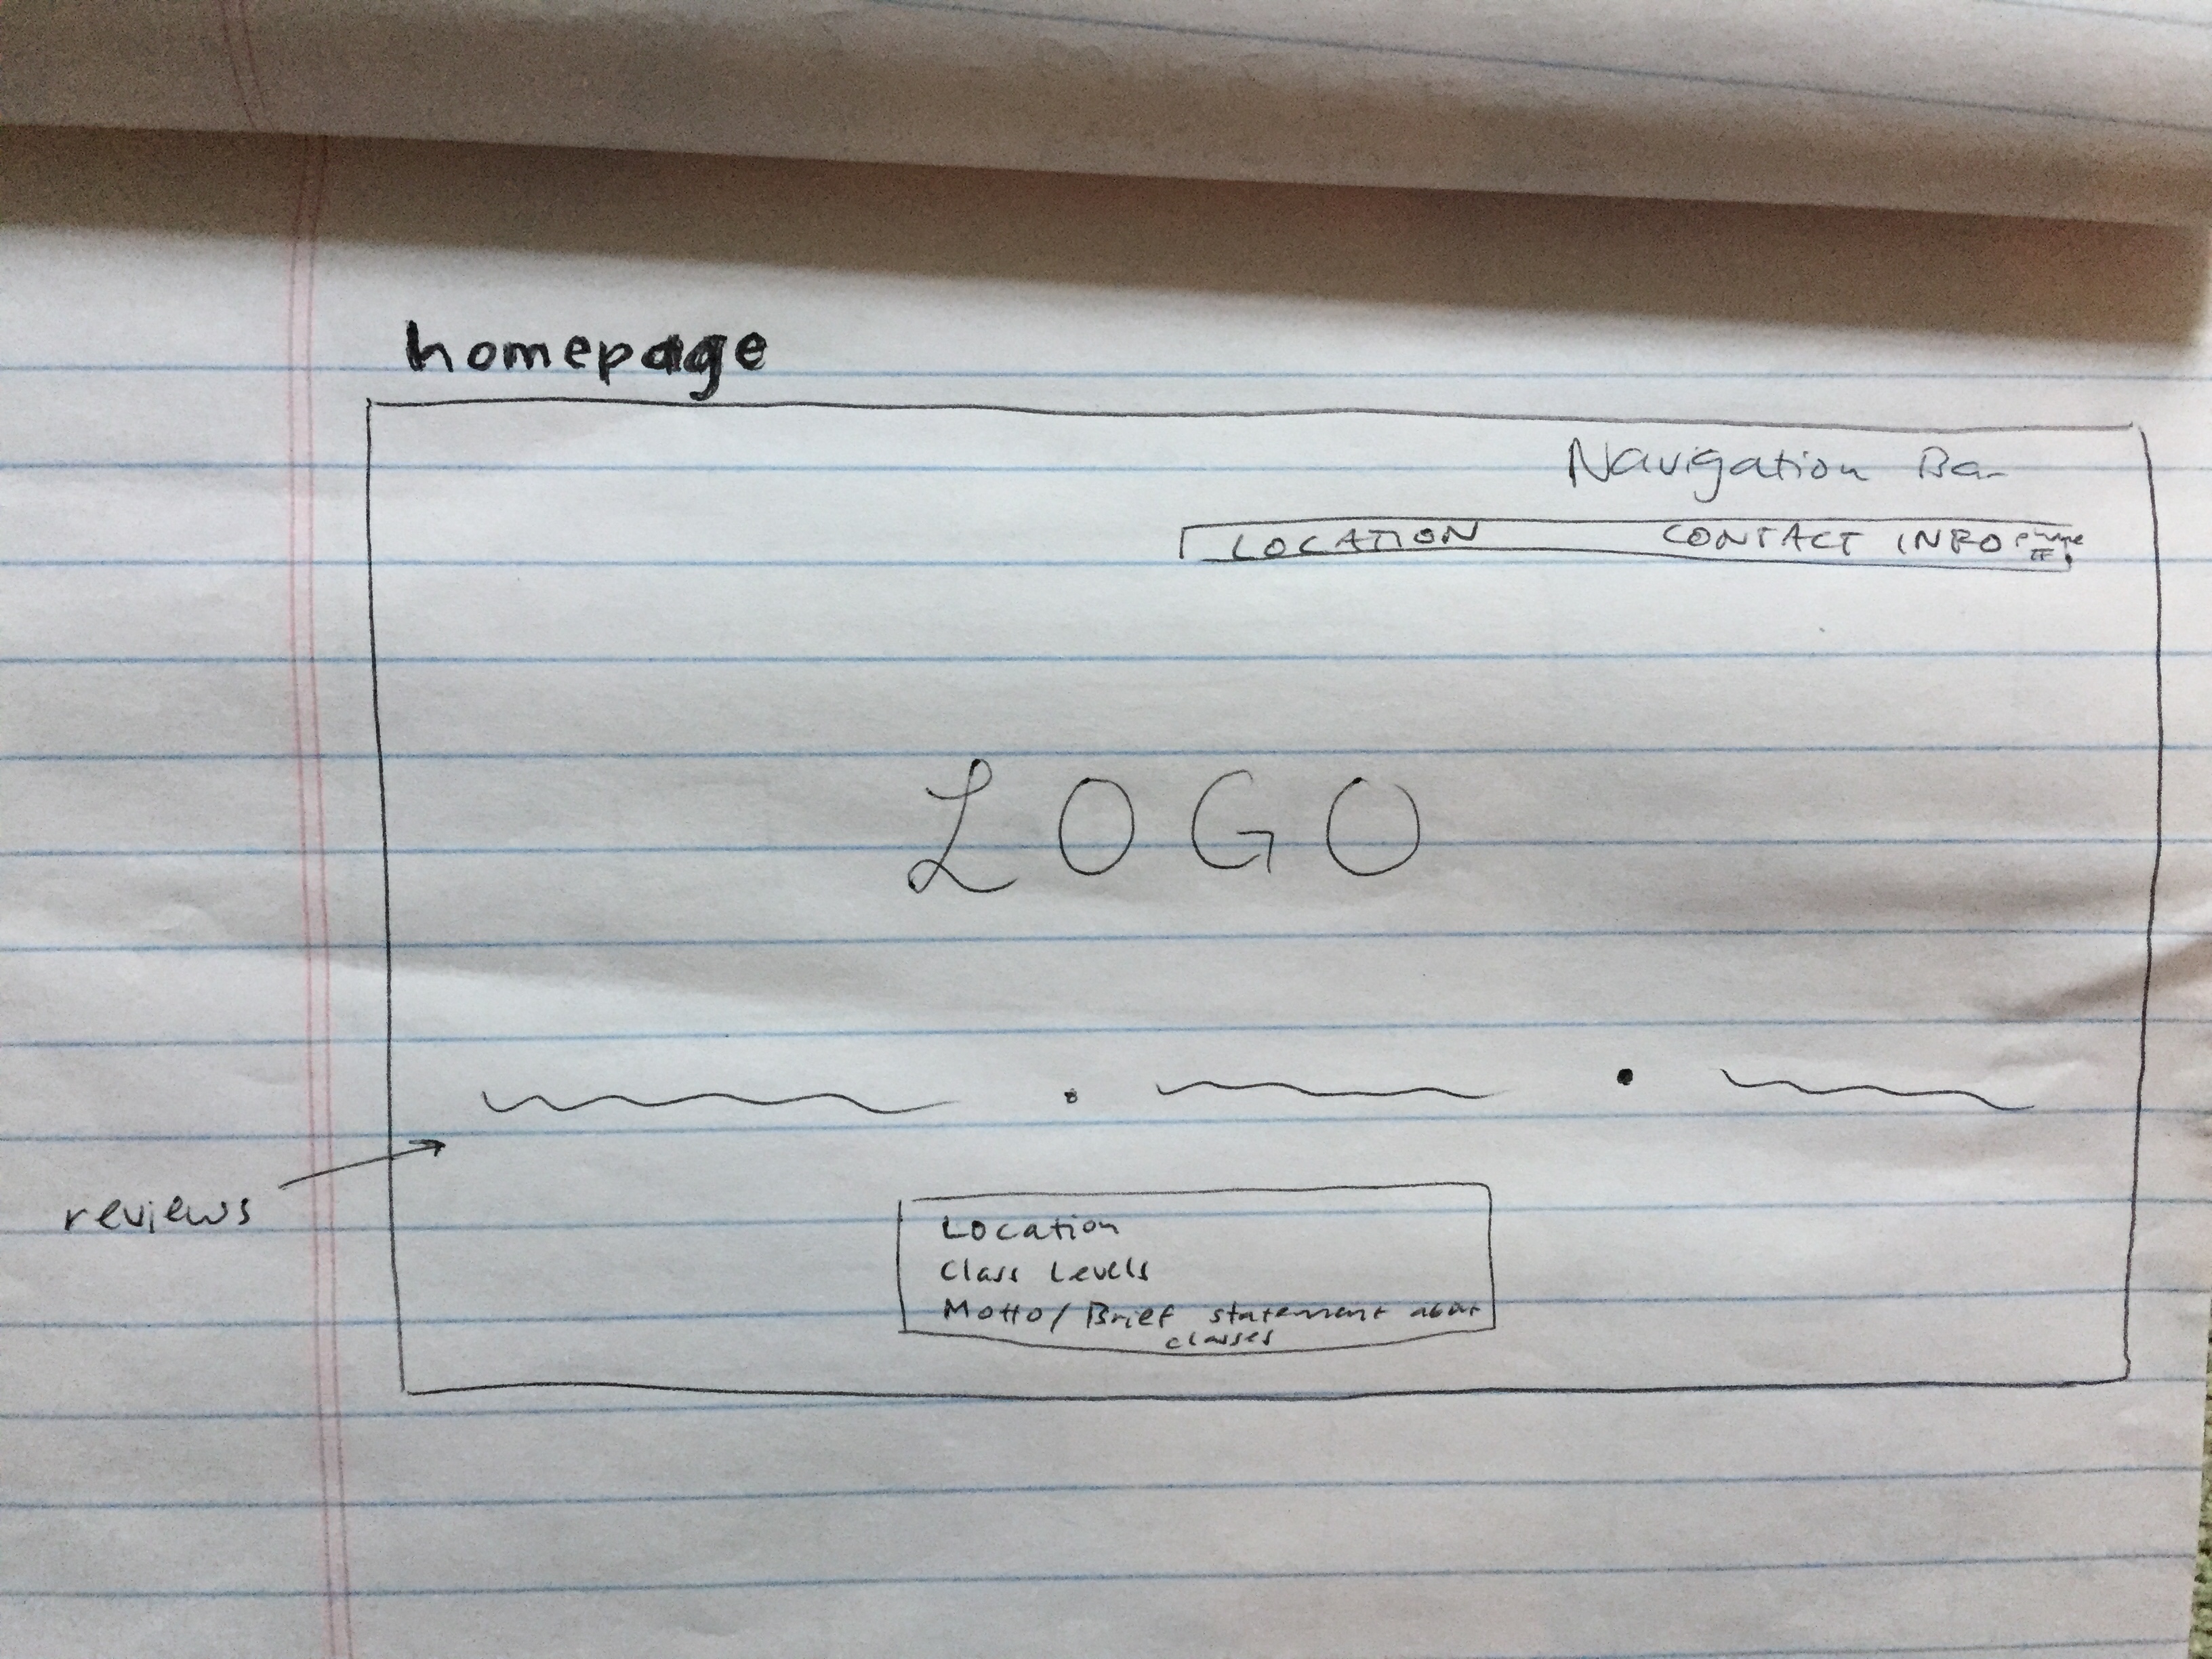 homepage
Navigation Bar
LOCATION CONTACT INFO phone #
LOGO
reviews
Location
Class Levels
Motto/Brief statement about
classes